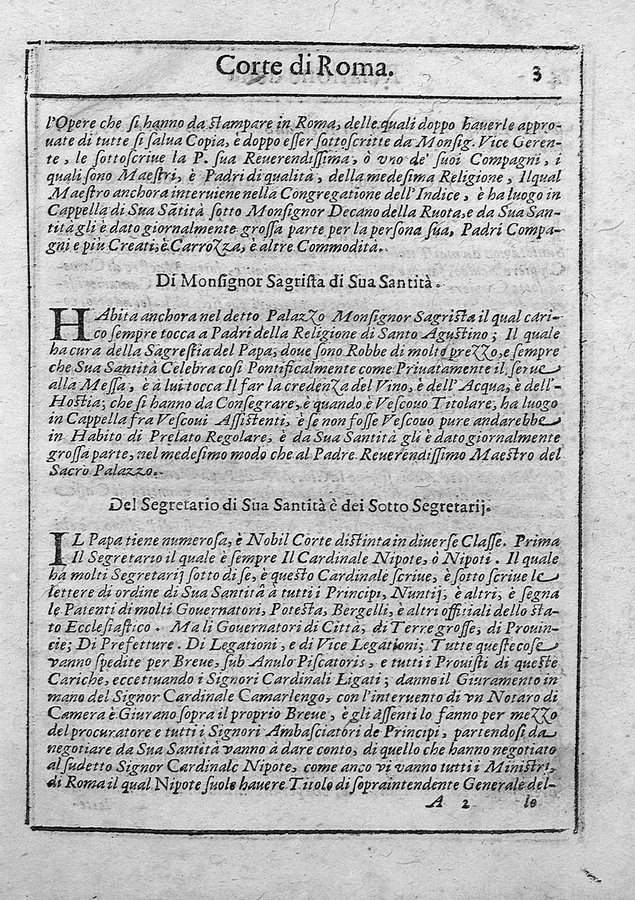 Corte di Roma. 3
l'Opere che si hanno da stampare in Roma, delle quali doppo hauerle appro-
uate di tutte si salua Copia, è doppo esser sottoscritte da Monsig. Vice Geren-
te, le sottoscriue la P. sua Reuerendissima, ò vno de' suoi Compagni, i
quali sono Maestri, è Padri di qualità, della medesima Religione, Ilqual
Maestro anchora interuiene nella Congregatione dell'Indice, è ha luogo in
Cappella di Sua Sãtità sotto Monsignor Decano della Ruota, e da Sua San-
tità gli è dato giornalmente grossa parte per la persona sua, Padri Compa-
gni e più Creati, è Carrozza, è altre Commodità.
Di Monsignor Sagrista di Sua Santità.
HAbita anchora nel detto Palazzo Monsignor Sagrista il qual cari-
co sempre tocca a Padri della Religione di Santo Agustino; Il quale
ha cura della Sagrestia del Papa, doue sono Robbe di molto prezzo, e sempre
che Sua Santità Celebra così Pontificalmente come Priuatamente il serue
alla Messa, è à lui tocca Il far la credenza del Vino, è dell'Acqua, è dell'-
Hostia; che si hanno da Consegrare, e quando è Vescouo Titolare, ha luogo
in Cappella fra Vescoui Assistenti, è se non fosse Vescouo pure andarebbe
in Habito di Prelato Regolare, è da Sua Santità gli è dato giornalmente
grossa parte, nel medesimo modo che al Padre Reuerendissimo Maestro del
Sacro Palazzo.
Del Segretario di Sua Santità è dei Sotto Segretarij.
IL Papa tiene numerosa, è Nobil Corte distinta in diuerse Classe. Prima
Il Segretario il quale è sempre Il Cardinale Nipote, ò Nipoti. Il quale
ha molti Segretarij sotto di se, è questo Cardinale scriue, è sotto scriue le
lettere di ordine di Sua Santità à tutti i Principi, Nuntij, è altri, è segna
le Patenti di molti Gouernatori, Potesta, Bergelli, è altri offitiali dello sta-
to Ecclesiastico. Ma li Gouernatori di Città, di Terre grosse, di Prouin-
cie; Di Prefetture. Di Legationi, e di Vice Legationi; Tutte queste cose
vanno spedite per Breue, sub Anulo Piscatoris, e tutti i Prouisti di queste
Cariche, eccettuando i Signori Cardinali Ligati; danno il Giuramento in
mano del Signor Cardinale Camarlengo, con l'interuento di vn Notaro di
Camera è Giurano sopra il proprio Breue, è gli assenti lo fanno per mezzo
del procuratore e tutti i Signori Ambasciatori de Principi, partendosi da
negotiare da Sua Santità vanno à dare conto, di quello che hanno negotiato
al sudetto Signor Cardinale Nipote, come anco vi vanno tutti i Ministri,
di Roma il qual Nipote suole hauere Titolo di sopraintendente Generale del-
A 2 lo